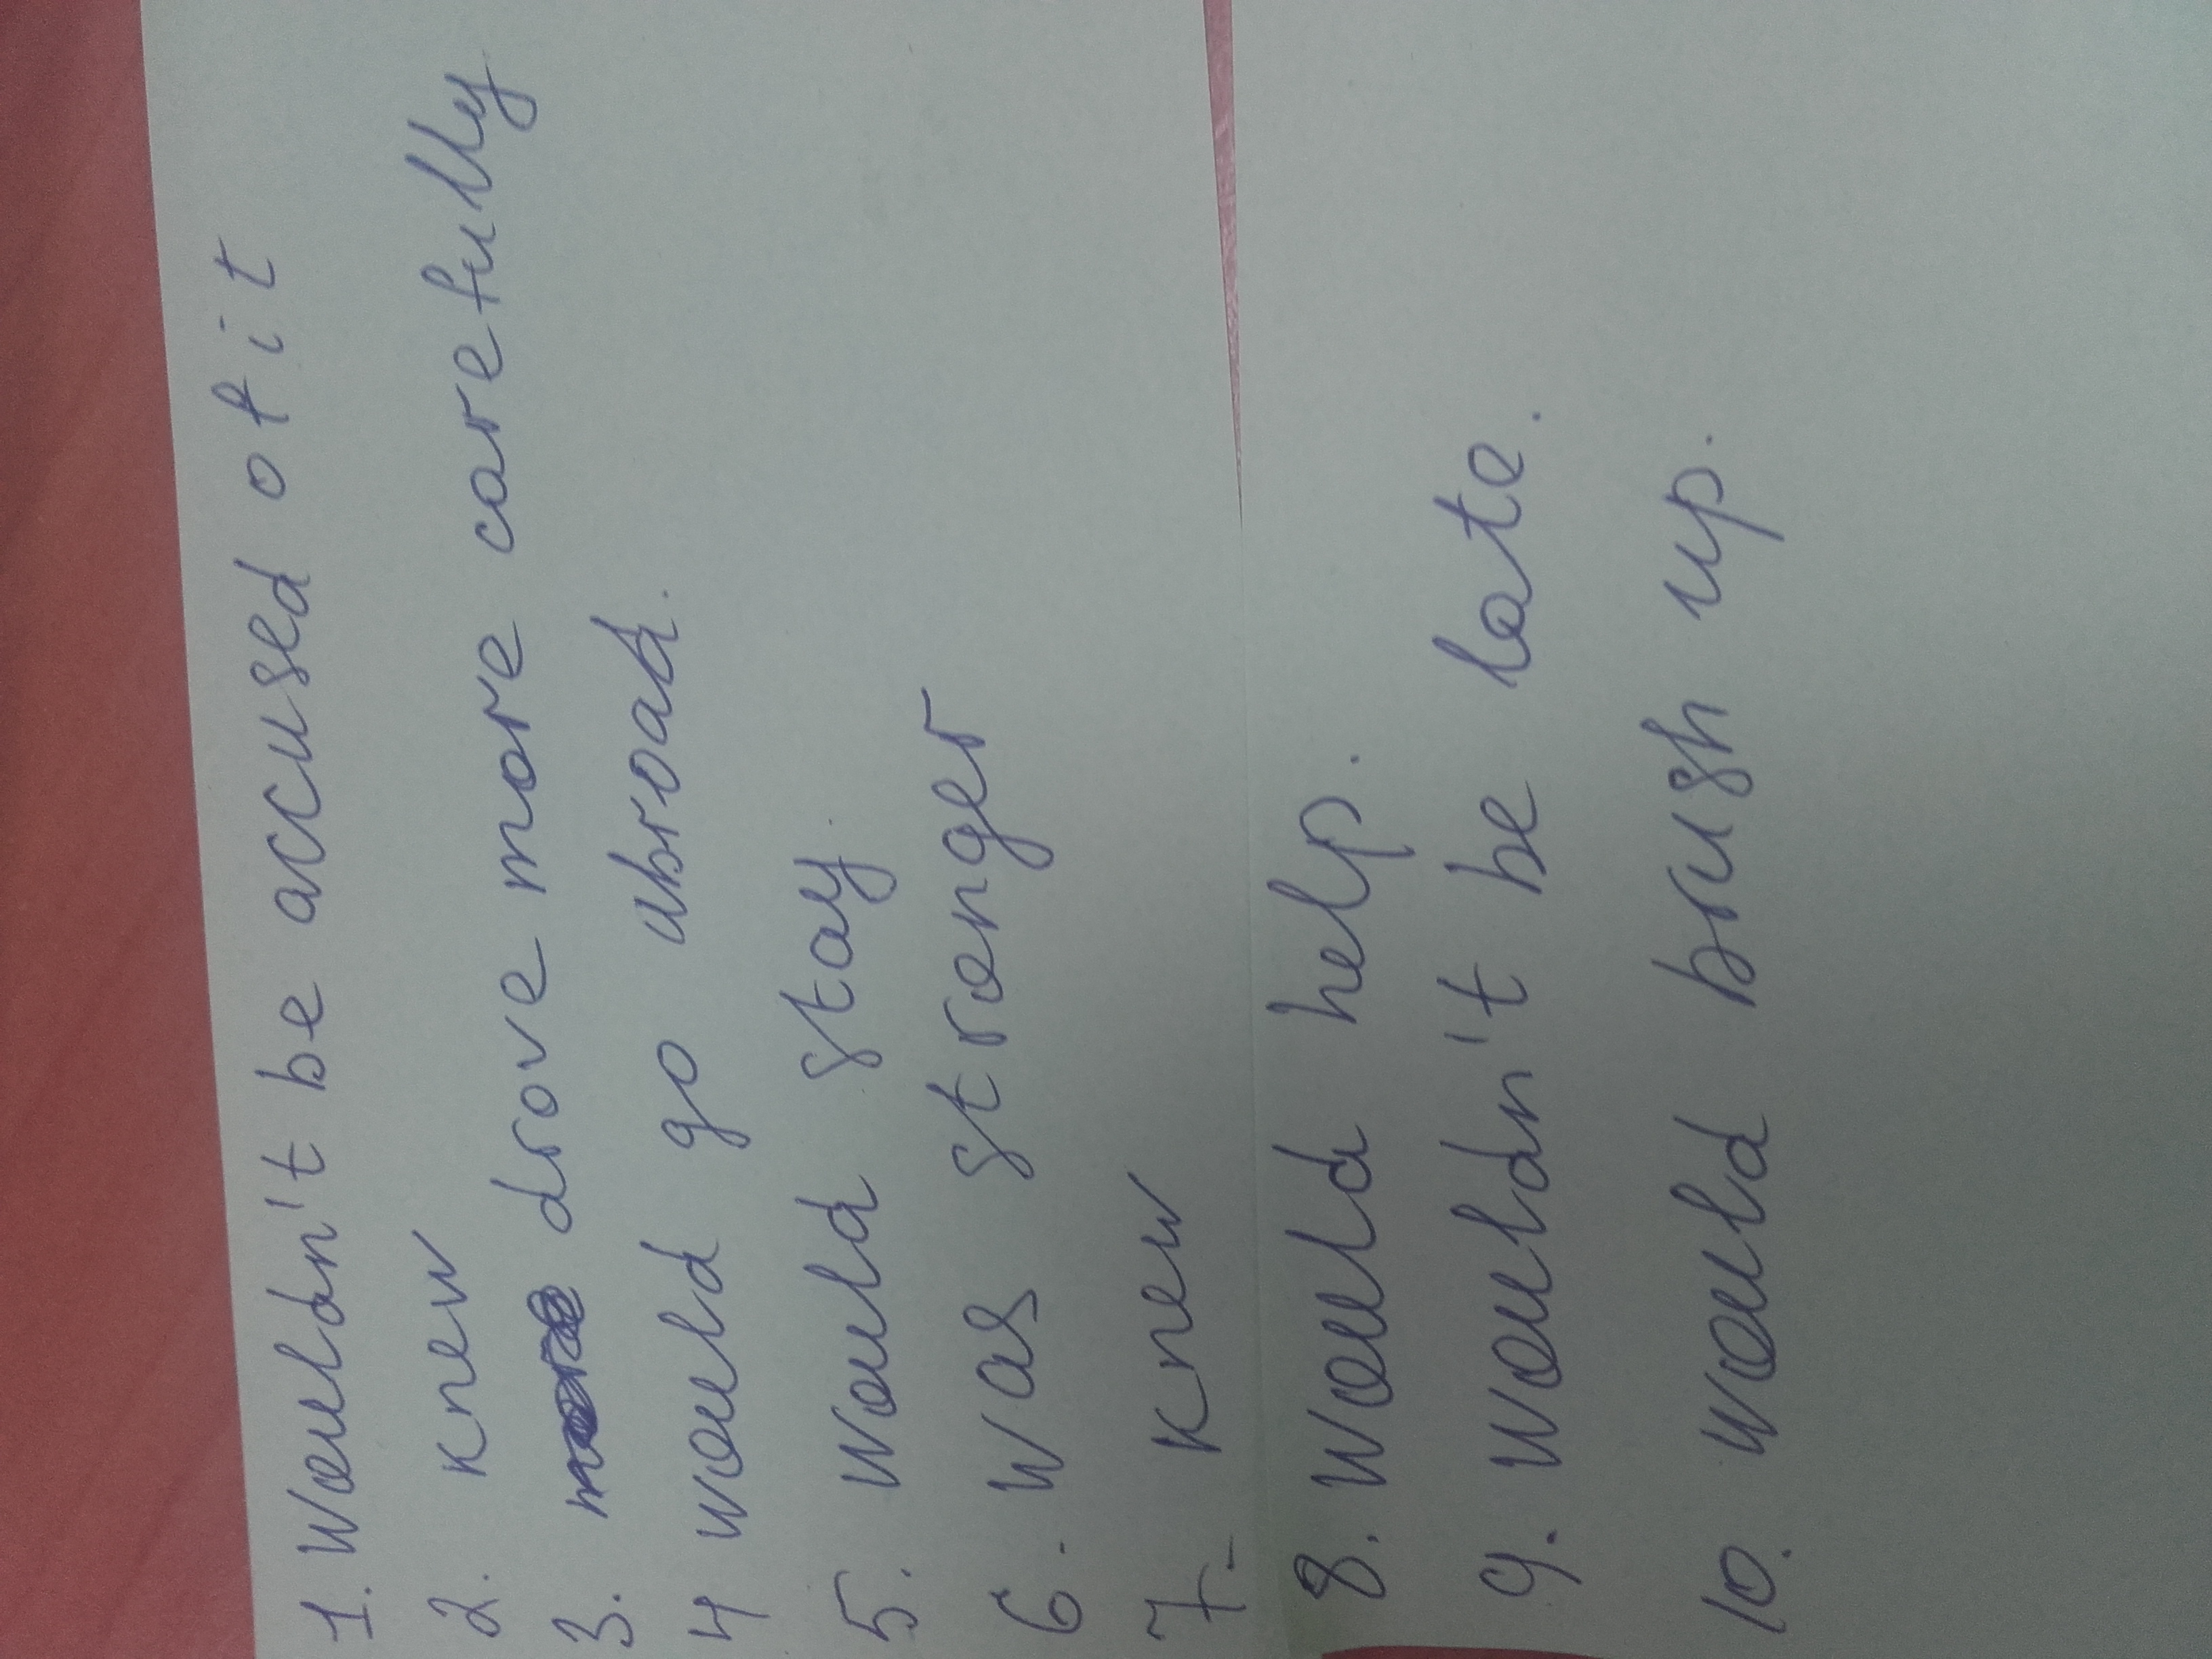 1. Wouldn't be accused of it
2. knew
3. drove more carefully
4 would go abroad.
5. would stay.
6. was stronger
7. knew
8. would help.
9. wouldn't be late.
10. would brush up.